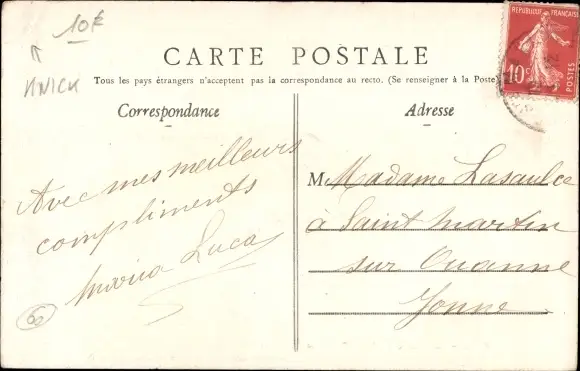 10€
KNICK
RÉPUBLIQUE FRANÇAISE
10c
POSTES
CARTE POSTALE
Tous les pays étrangers n'acceptent pas la correspondance au recto. (Se renseigner à la Poste)
Correspondance
Avec mes meilleurs
compliments
Maria Luca
60
Adresse
M Madame Lasaulce
à Saint Martin
sur Ouanne
Yonne